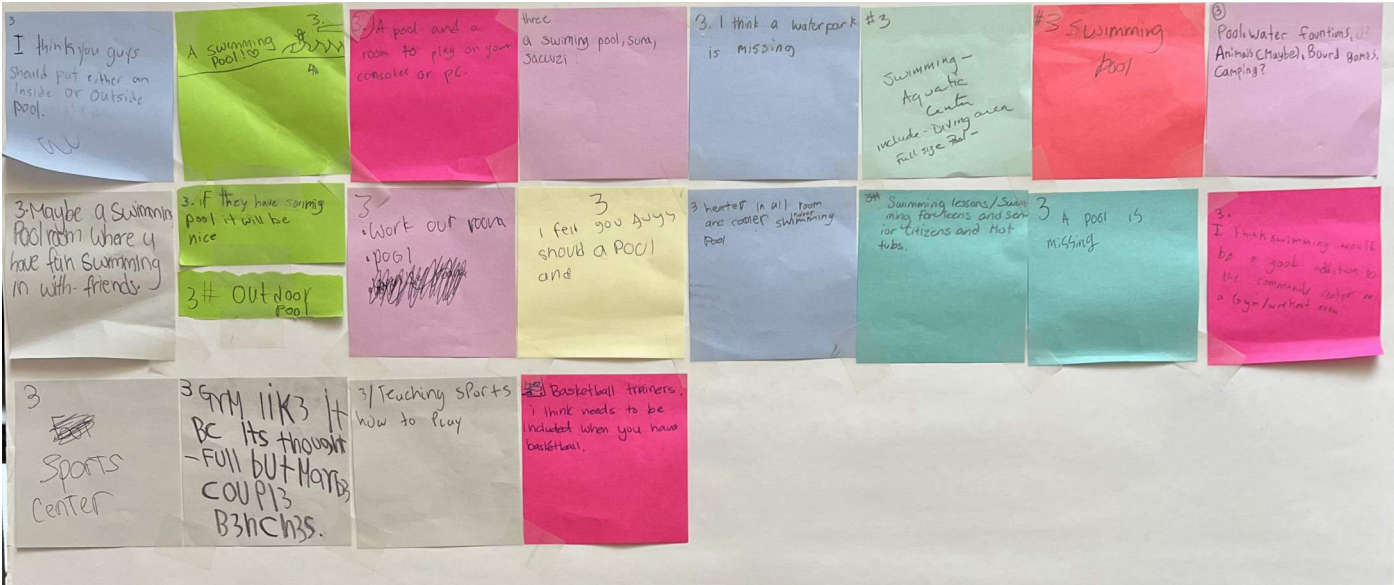 3
I think you guys
should put either an
inside or outside
pool.
3.
A swimming
pool!♡
3. A pool and a
room to play on your
consoles or PC.
three
a swiming pool, suna,
Jaccuzi
3. I think a waterpark
is missing
#3
Swimming -
Aquatic
Center
include - Diving area
Full size Pool -
#3 Swimming
pool
3
Pool, water fountions,
Animals (Maybe), Board games.
Camping?
3. Maybe a swimming
pool room where u
have fun swimming
in with friends
3. if they have swimig
pool it will be
nice
3# Outdoor
pool
3
• Work out room
• pool
3
I felt you guys
should a POOl
and
3 heater in all room
arc cooler indoor swimming
pool
Swimming lessons/Swim-
ming for teens and sen-
ior citizens and Hot
tubs.
3 A pool is
missing
3.
I think swimming would
be a good addition to
the community center or
a Gym/workout room
3
Sports
Center
3 Gym lik3 it
BC Its thought
-Full but Mayb3
coupl3
B3nch3s.
3/Teaching sports
how to play
Basketball trainers.
i think needs to be
included when you have
basketball.